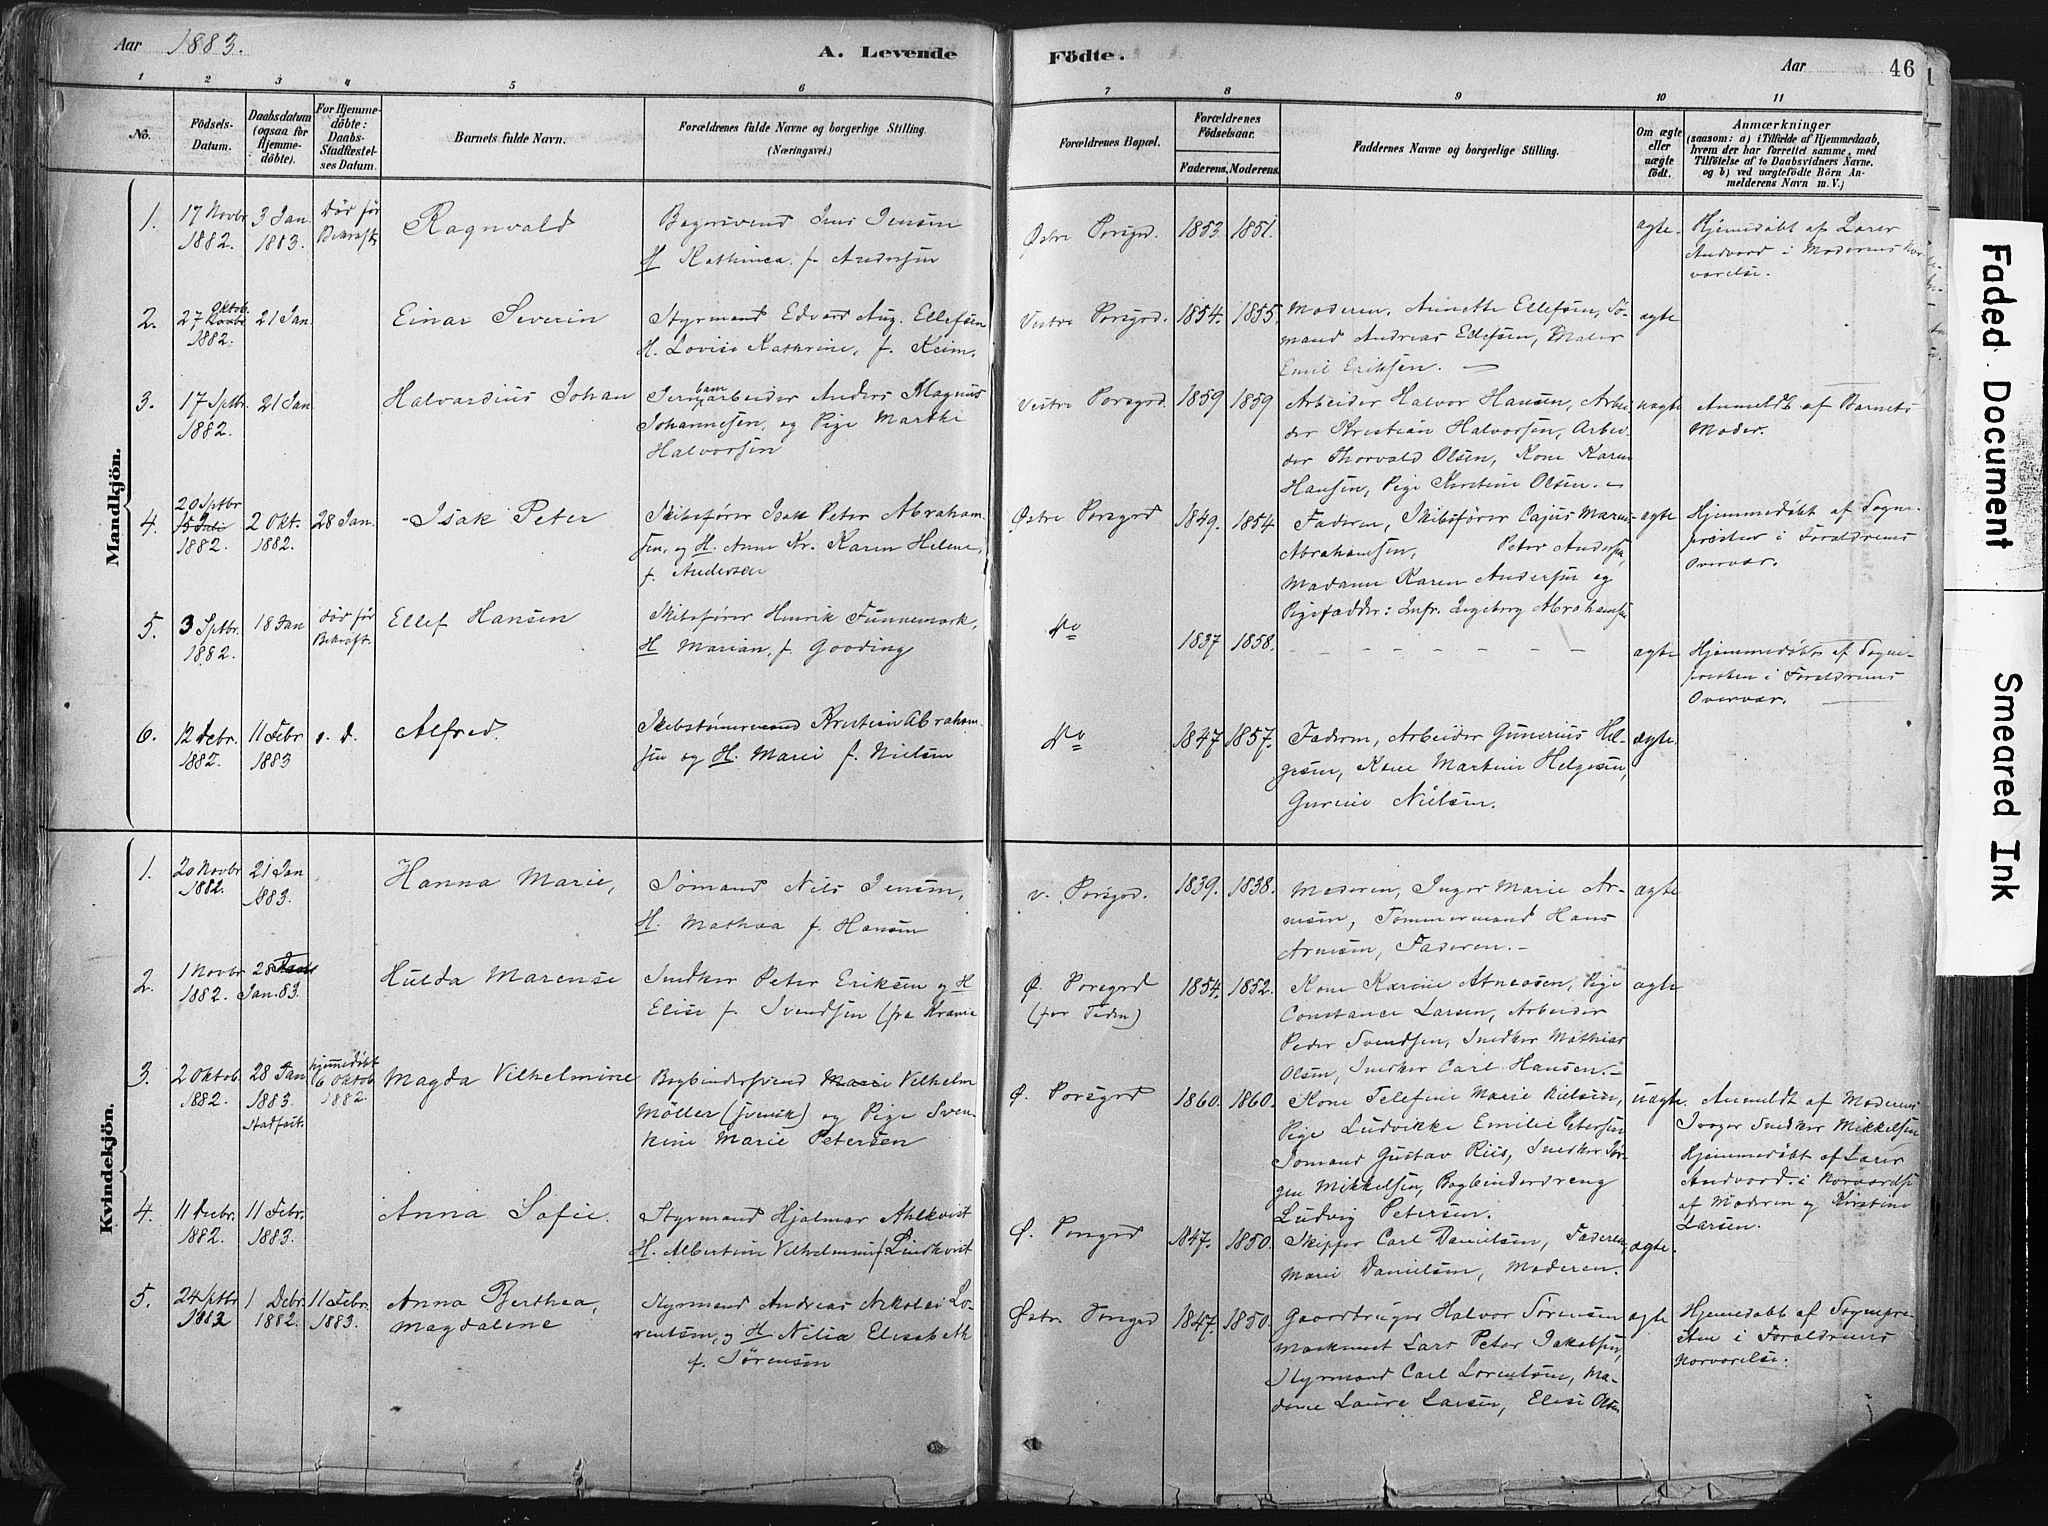 Aar 1883.
A. Levende Födte.
Aar
46
1 2 3 4 5 6 7 8 9 10 11
No.
Födsels-
Datum.
Daabsdatum
(ogsaa for
Hjemme-
döbte).
For Hjemme-
döbte:
Daabs-
Stadfæstel-
ses Datum.
Barnets fulde Navn.
Forældrenes fulde Navne og borgerlige Stilling.
(Næringsvei.)
Forældrenes Bopæl.
Forældrenes
Födselsaar.
Faderens. Moderens.
Faddernes Navne og borgerlige Stilling.
Om ægte
eller
uægte
födt.
Anmærkninger
(saasom: a) i Tilfælde af Hjemmedaab,
hvem der har forrettet samme, med
Tilföielse af to Daabsvidners Navne.
og b) ved uægtefödte Börn An-
melderens Navn m. V.)
Mandkjön.
1.
17 Novbr
1882.
3 Jan
1883.
Død før
Bekræft.
Ragnvald
Bagersvend Jens Jensen
H Kathinca f. Andersen
Østre Porsgrd.
1853. 1851.
ægte.
Hjemmedøbt af Lærer
Andvord i Moderens Nær
værelse.
2.
Oktob.
27 Novbr
1882.
21 Jan
Einar Severin
Styrmand Edvard Aug. Ellefsen
H. Lovise Kathrine, f. Keim.
Vestre Porsgrd.
1854. 1855.
Moderen, Annette Ellefsen, Sø-
mand Andreas Ellefsen, Maler
Emil Eriksen. —
ægte
3.
17 Sptbr
1882.
21 Jan
Halvardius Johan
bane
Jernarbeider Anders Magnus
Johannesen, og Pige Marthe
Halvorsen
Vestre Porsgrd.
1859 1859
Arbeider Halvor Hansen, Arbei
der Kristian Halvorsen, Arbei-
der Thorvald Olsen, Kone Karen
Hansen, Pige Kirstine Olsen. —
uægte
Anmeldt af Barnets
Moder.
4.
20 Sptbr
15 Juli
1882.
2 Okt.
1882.
28 Jan.
Isak Peter
Skibsfører Isak Peter Abraham-
sen, og H. Anne Kr. Karen Helene,
f. Andersen
Østre Porsgrd
1849. 1854
Faderen, Skibsfører Cajus Marius
Abrahamsen, Peter Andersen,
Madame Karen Andersen og
Pigefadder: Jnfr. Ingeborg Abrahamsen
ægte
Hjemmedøbt af Sogne-
præsten i Forældrenes
Overvær.
5.
3 Sptbr.
1882.
18 Jan
død før
Bekræft.
Ellef Hansen
Skibsfører Henrik Funnemark,
H Marian, f. Gooding
do
1837 1858.
ægte
Hjemmedøbt af Sogne-
præsten i Forældrenes
Overvær. —
6.
12 Decbr.
1882.
11 Febr
1883
s. D.
Alfred.
Skibstømmermand Kristian Abraham-
sen og H. Marie f. Nielsen
do
1847 1857.
Faderen, Arbeider Gunerius Hel-
gesen, Kone Martine Helgesen,
Gurine Nielsen.
ægte
Kvindekjön.
1.
20 Novbr
1882.
21 Jan
1883.
Hanna Marie,
Sømand Nils Jensen,
H. Mathea f. Hansen
v. Porsgrd.
1839. 1838.
Moderen, Inger Marie Ar-
nesen, Tømmermand Hans
Arnesen, Faderen. —
ægte
2.
1 Novbr
1882.
28
Jan. 83.
Hulda Marense
Snedker Peter Eriksen og H
Elise f. Svendsen (fra Kragerø
Ø. Porsgrd
1854. 1852.
Kone Karine Atneosen, Pige
Constance Larsen, Arbeider
Peder Svendsen, Snedker Mathias
Olsen, Snedker Carl Hansen. —
ægte
3.
2 Oktob.
1882.
28 Jan
1883.
Stadfæst.
hjemmedøbt
6 Oktob
1882.
Magda Vilhelmine
Bogbindersvend Marie Vilhelm
Möller (svensk) og Pige Sven-
kine Marie Petersen
Ø. Porsgrd
1860. 1860.
Kone Telefine Marie Nielsen,
Pige Ludvikke Emilie Petersen
Sømand Gustav Riis, Snedker Jør-
gen Mikkelsen, Bogbinderdreng
Ludvig Petersen.
uægte.
Anmeldt af Moderens
Svoger Snedker Mikkelsen
Hjemmedøbt af Lærer
Andvord i Nærværelse
af Moderen og Kristine
Larsen.
4.
11 Decbr.
1882.
11 Febr.
1883.
Anna Sofie.
Styrmand Hjalmar Ahlkvist
H. Albertine Vilhelmine f Lindkvist
Ø. Porsgrd
1847. 1850.
Skipper Carl Danielsen, Faderen,
Marie Danielsen, Moderen.
ægte.
5.
24 Sptbr
1882
1 Decbr.
1882.
11 Febr.
1883.
Anna Berthea,
Magdalene
Styrmand Andreas Nikolai Lo-
rentsen, og H. Nilia Elisabeth
f. Sørensen
Østre Porsgrd
1847. 1850.
Gaardbruger Halvor Sørensen
Maskinist Lars Peter Jakobsen,
Styrmand Carl Lorentsen, Ma-
dame Laura Larsen, Elise Olsen
ægte
Hjemmedøbt af Sognepræ-
sten i Forældrenes
Nærværelse.
Faded Document
Smeared Ink